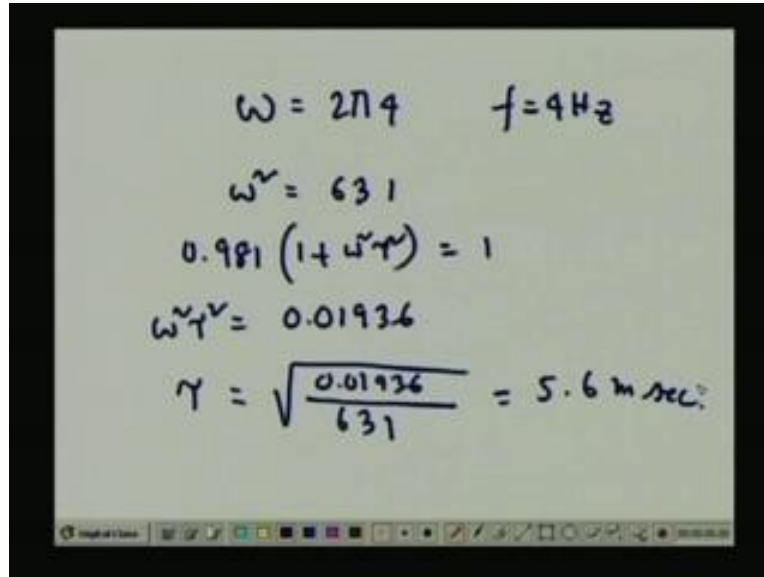 ω = 2π4 f = 4 Hz
ω² = 631
0.981 (1 + ω²τ²) = 1
ω²τ² = 0.01936
τ = √(0.01936 / 631) = 5.6 m sec.